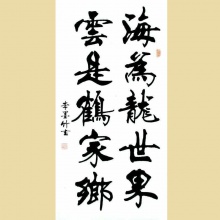 海為龍世界
雲是鶴家鄉
李墨竹書